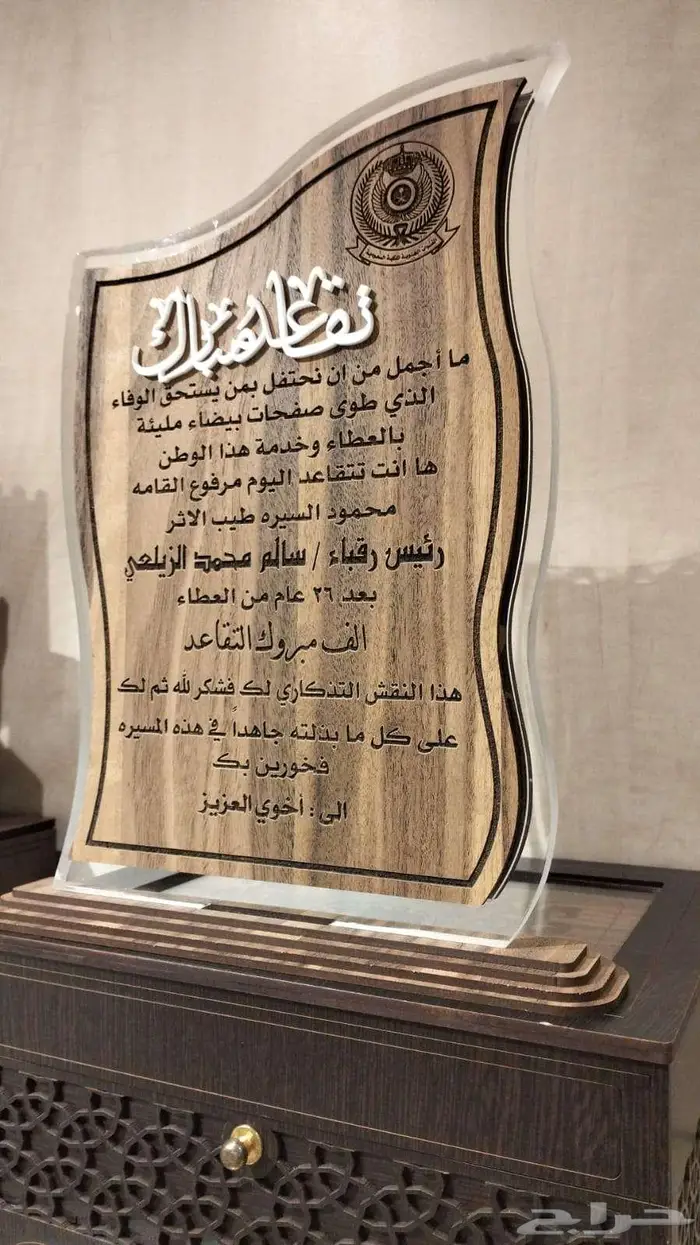 تقاعد مبارك
ما أجمل من ان نحتفل بمن يستحق الوفاء
الذي طوى صفحات بيضاء مليئة
بالعطاء وخدمة هذا الوطن
ها انت تتقاعد اليوم مرفوع القامه
محمود السيره طيب الاثر
رئيس رقباء / سالم محمد الزيلعي
بعد ٢٦ عام من العطاء
الف مبروك التقاعد
هذا النقش التذكاري لك فشكر لله ثم لك
على كل ما بذلته جاهداً في هذه المسيره
فخورين بك
الى : أخوي العزيز
حراج